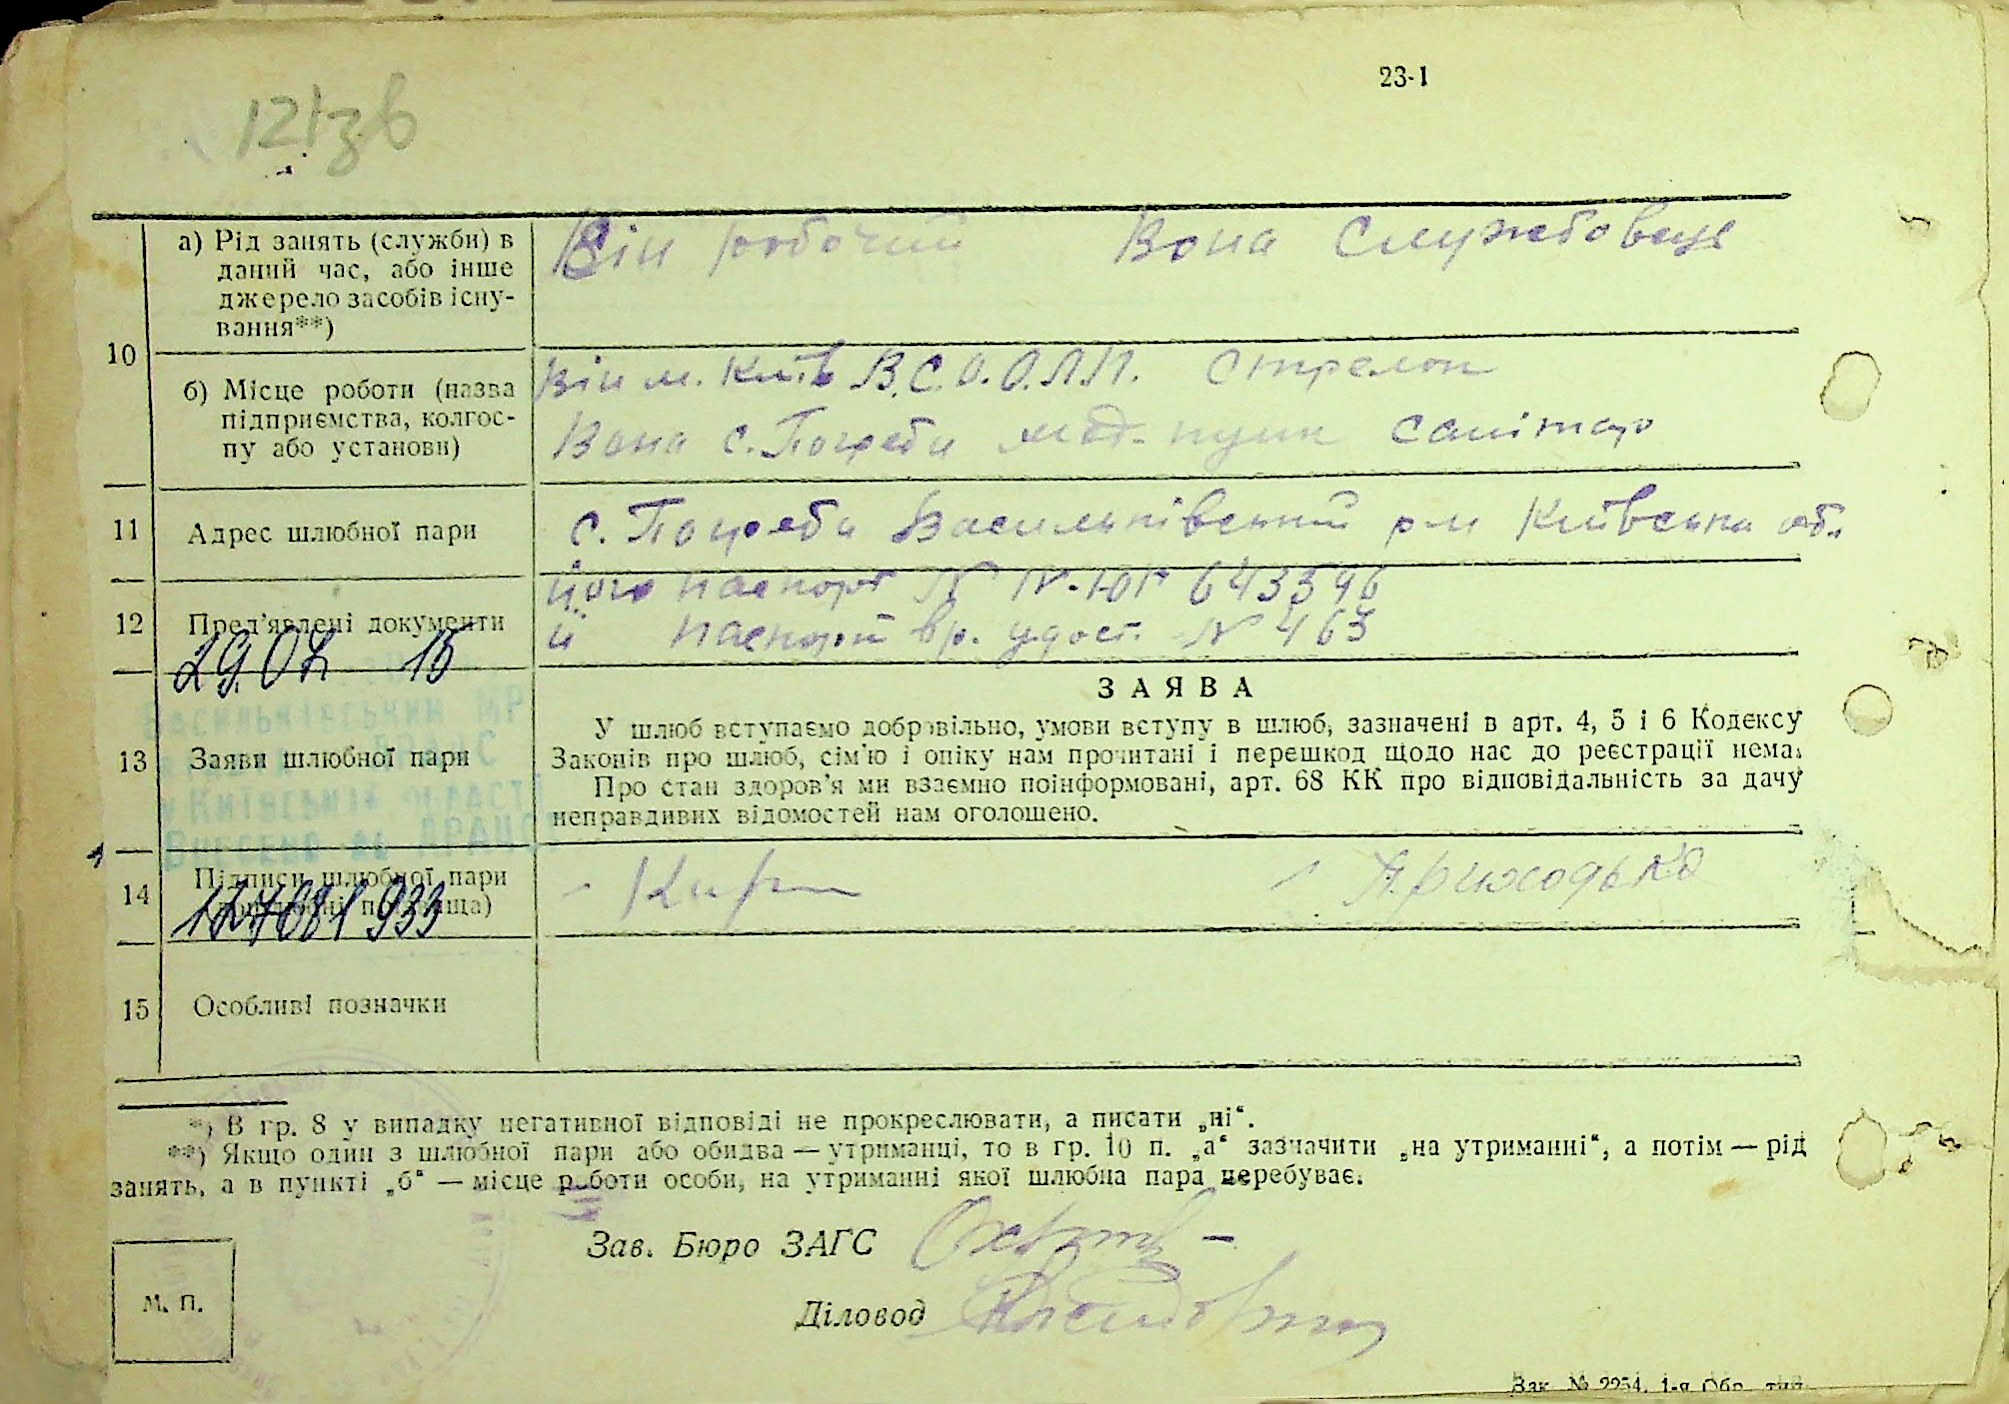 23-1
121зв
10
а) Рід занять (служби) в
даний час, або інше
джерело засобів існу-
вання**)
Він робочий Вона службовець
б) Місце роботи (назва
підприємства, колгос-
пу або установи)
Він м. Київ В.С.О.О.Л.П. стрелок
Вона с. Погреби мед. пунк санітар
11 Адрес шлюбної пари
с. Погреби Васильківський р-н Київська об.
12 Пред'явлені документи
його паспорт № IV-ЮГ 643596
її паспорт вр. удост. № 463
29.07 15
Васильківський МР
Київській області
Внесено до ДРАЦС
127081933
13 Заяви шлюбної пари
ЗАЯВА
У шлюб вступаємо добровільно, умови вступу в шлюб, зазначені в арт. 4, 5 і 6 Кодексу
Законів про шлюб, сім'ю і опіку нам прочитані і перешкод щодо нас до реєстрації нема.
Про стан здоров'я ми взаємно поінформовані, арт. 68 КК про відповідальність за дачу
неправдивих відомостей нам оголошено.
14 Підписи шлюбної пари
Приходько
15 Особливі позначки
*) В гр. 8 у випадку негативної відповіді не прокреслювати, а писати „ні“.
**) Якщо один з шлюбної пари або обидва — утриманці, то в гр. 10 п. „а“ зазначити „на утриманні“, а потім — рід
занять, а в пункті „б“ — місце роботи особи, на утриманні якої шлюбна пара перебуває.
Зав. Бюро ЗАГС
Діловод
М. П.
Зак. № 2254. 1-я Обр. тип.